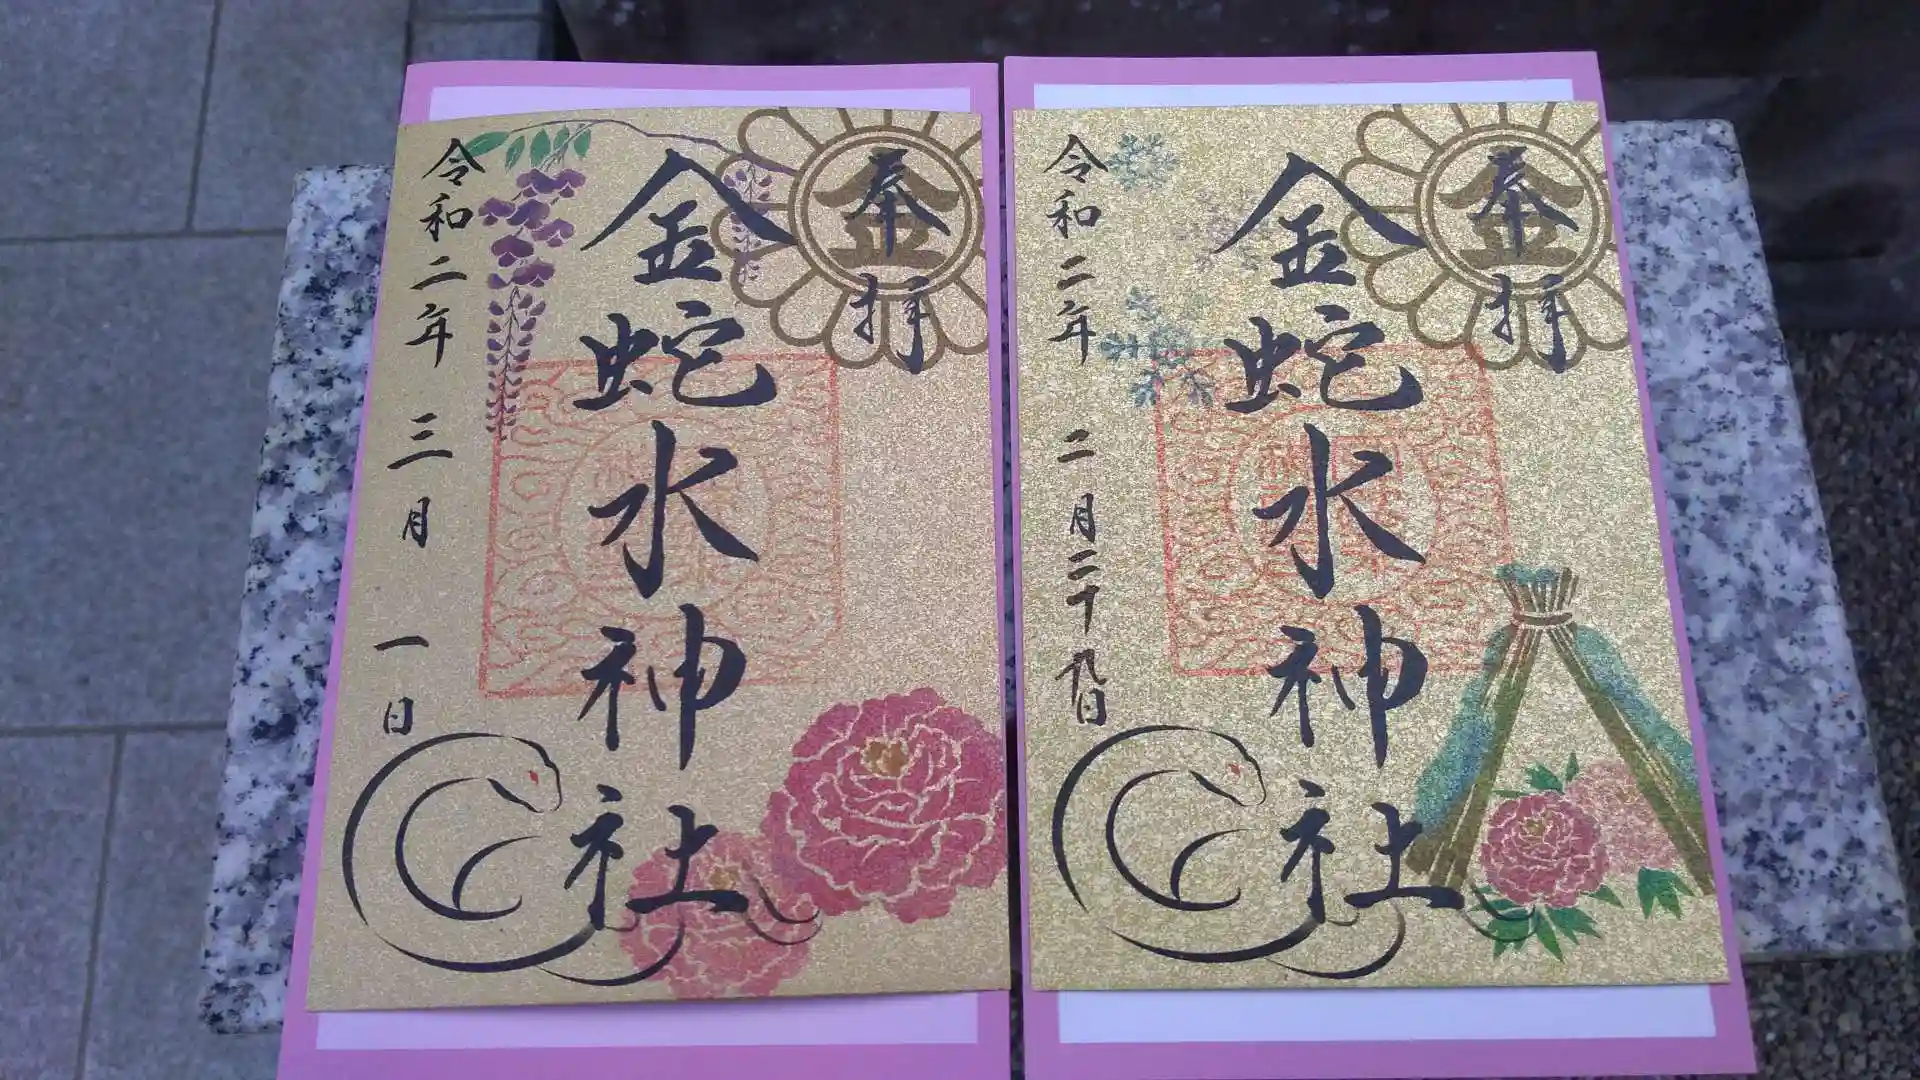 奉拝
金蛇水神社
令和二年 三月 一日
奉拝
金蛇水神社
令和二年 二月二十九日